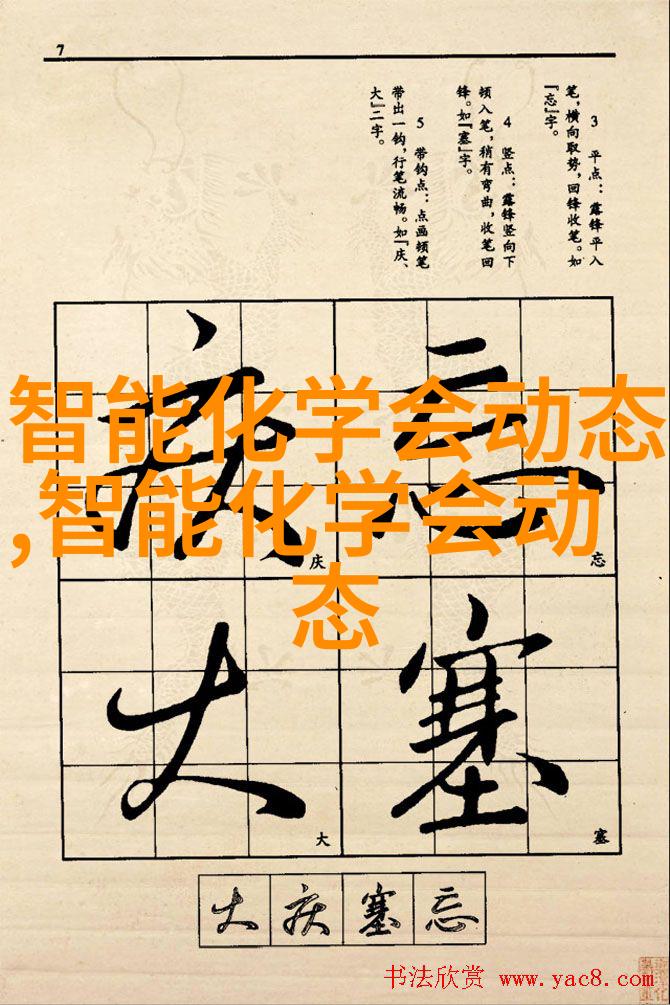 7
3 平点：露锋平入
笔，横向取势，回锋收笔。如
『忘』字。
4 竖点：露锋竖向下
顿入笔，稍有弯曲，收笔回
锋。如『塞』字。
5 带钩点：点画顿笔
带出一钩，行笔流畅。如『庆、
大』二字。
智能化学会动态
,智能化学会动
态
庆 忘
庆 忘
大 塞
大 塞
大 庆 塞 忘
书法欣赏 www.yac8.com